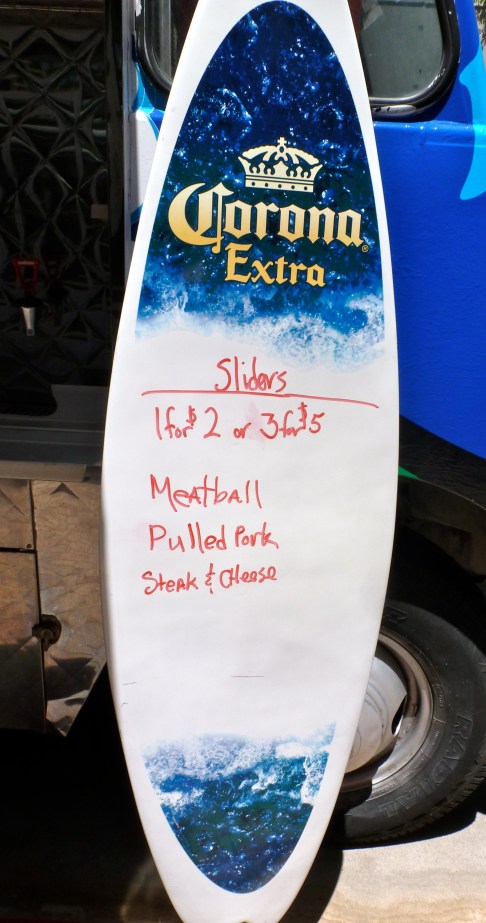 Corona
Extra
Sliders
1 for $2 or 3 for $5
Meatball
Pulled Pork
Steak & Cheese
RADIAL